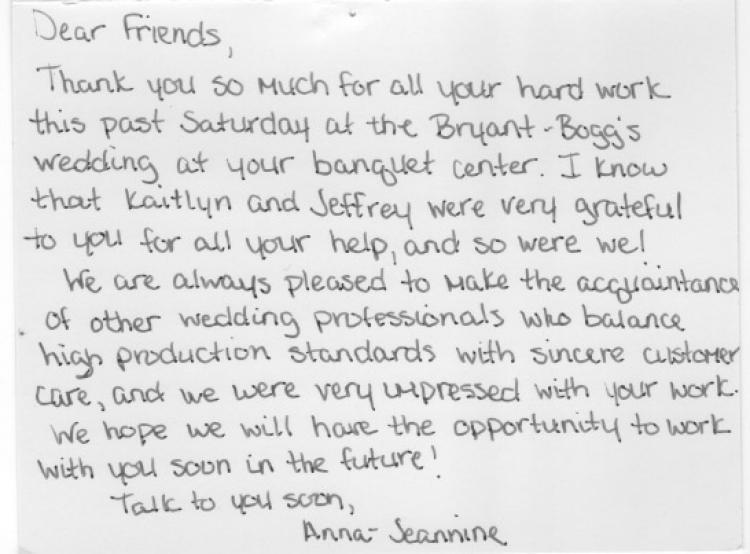 Dear Friends,
Thank you so much for all your hard work
this past Saturday at the Bryant-Bogg's
wedding at your banquet center. I know
that Kaitlyn and Jeffrey were very grateful
to you for all your help, and so were we!
We are always pleased to make the acquaintance
of other wedding professionals who balance
high production standards with sincere customer
care, and we were very impressed with your work.
We hope we will have the opportunity to work
with you soon in the future!
Talk to you soon,
Anna-Jeannine